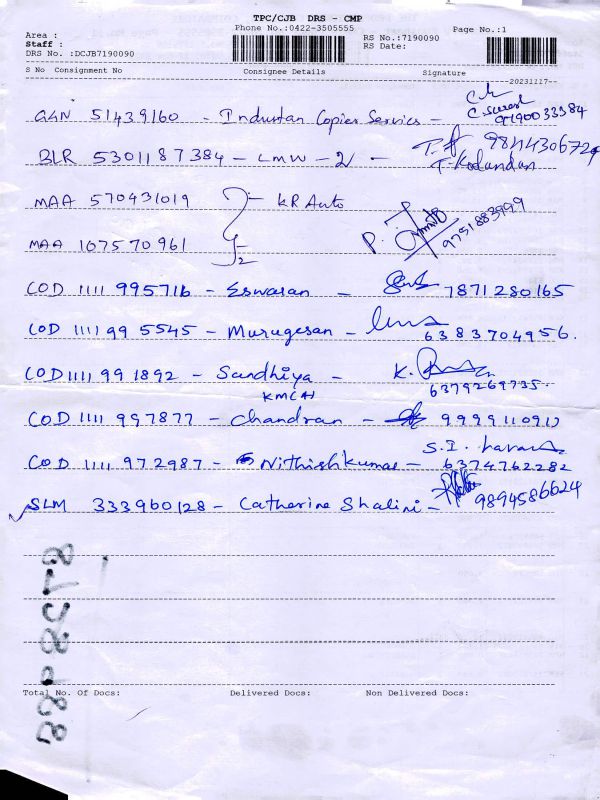 TPC/CJB DRS - CMP
Phone No.:0422-3505555
Page No.:1
Area :
Staff :
DRS No. :DCJB7190090
RS No.:7190090
RS Date:
S No Consignment No Consignee Details Signature
20231117
51439160 - Industan Copier Service -
C. Suresh
BLR 5301187384 - LMW - 2/ -
T. Kodandan
MAA 570431019 - KR Auto
MAA 1075 70 961 2
P. 9751883999
COD 1111 995716 - Eswaran - 7871280165
COD 1111 99 5545 - Murugesan - 6383704956.
COD 1111 991892 - Sandhiya - K.
6379269735.
KMCH
COD 1111 997877 - Chandran -
COD 1111 972987 - Nithishkumar - 6374762282
S.I.
SLM 333960128 - Catherine Shalini - 9894586624
Total No. Of Docs: Delivered Docs: Non Delivered Docs: